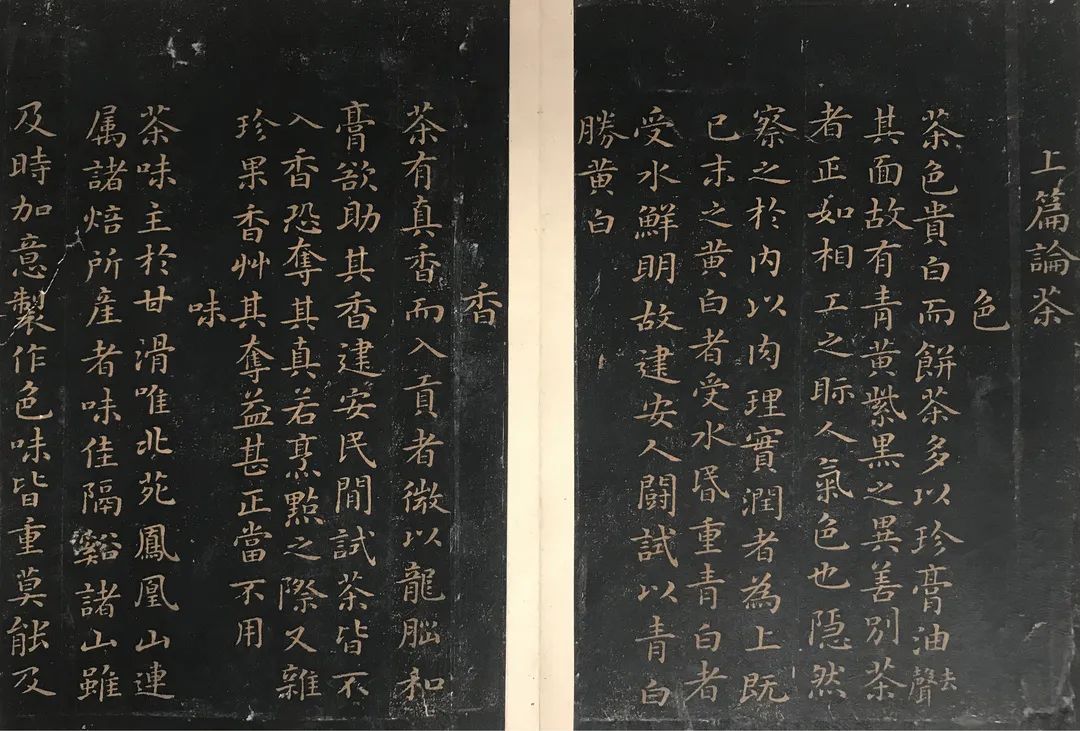 上篇論茶
色
茶色貴白而餅茶多以珍膏油去聲
其面故有青黃紫黑之異善別茶
者正如相工之眎人氣色也隠然
察之於內以肉理實潤者為上既
已末之黃白者受水昏重青白者
受水鮮明故建安人鬪試以青白
勝黃白
香
茶有真香而入貢者微以龍腦和
膏欲助其香建安民間試茶皆不
入香恐奪其真若烹點之際又雜
珍果香艸其奪益甚正當不用
味
茶味主於甘滑唯北苑鳳凰山連
属諸焙所産者味佳隔谿諸山雖
及時加意製作色味皆重莫能及